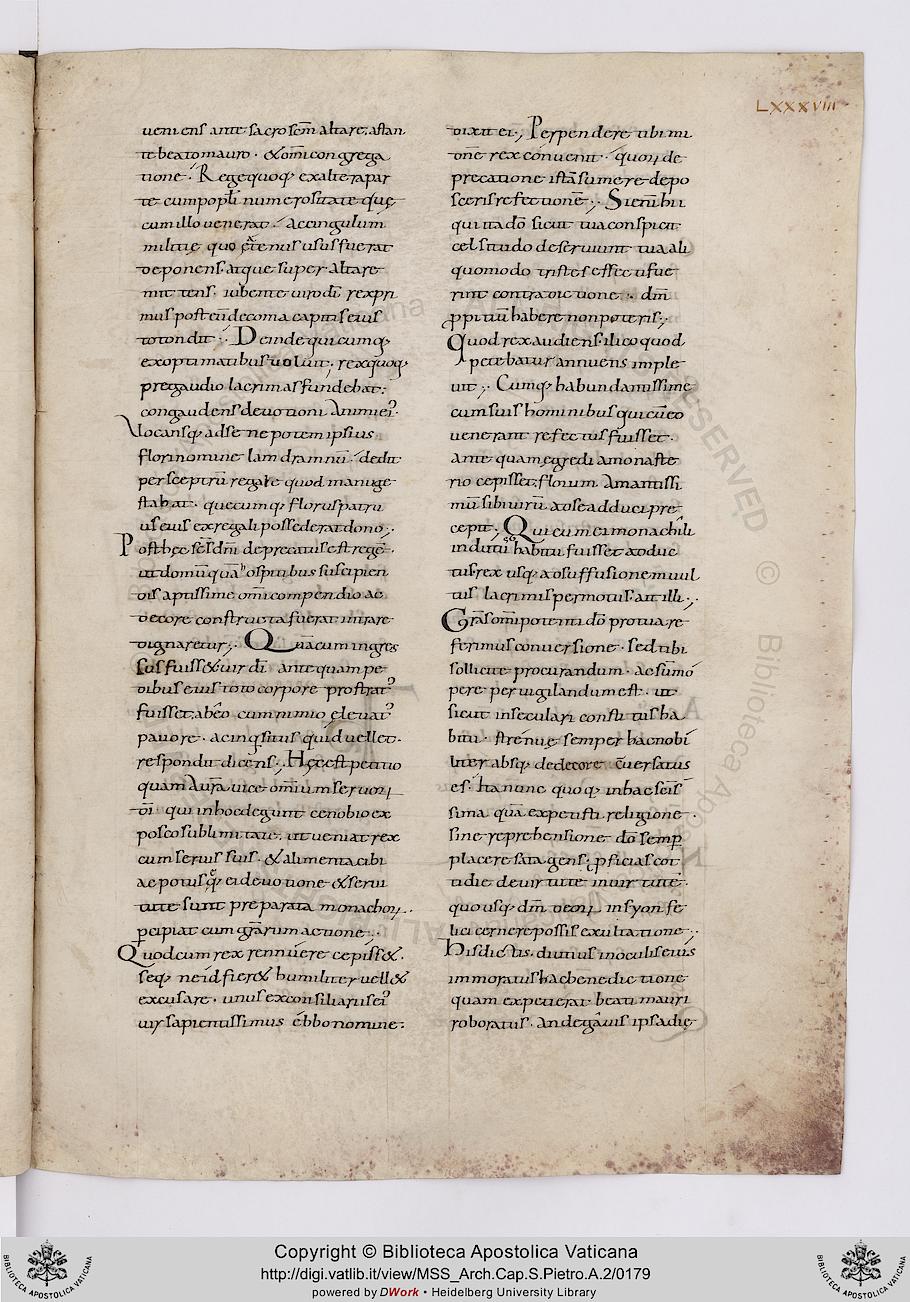 LXXXVIII
ueniens ante sacrosc̄m altare, astan
te beato mauro · & om̄i congrega
tione · Rege quoq; ex altera par
te cum pop̄li numerositate quę
cum illo uenerat · accingulum
militię quo eatenus usus fuerat
deponens · atque super altare
mittens · iubente uiro dī rex pri
mus postem̄ de coma capitis eius
totondit ·, Deinde qui cumq;
ex optimatibus uoluit · rex quoq;
prę gaudio lacrimas fundebat ·
congaudens deuotioni animi ei;
Vocansq; ad se nepotem ipsius
flori nomine landramnū · dedit
per sceptrū regale quod manu ge
stabat · quecumq; florus patru
us eius ex regali possederat dono ·,
Post hęc sc̄s dn̄i deprecatus est regē ·
ut domū quā hospitibus suscipien
dis aptissime om̄i compendio ac
decore constructa fuerat intrare
dignaretur ·, Quā cum ingres
sus fuiss& uir dī ante quam pe
dibus eius toto corpore prostrat;
fuisset, ab eo cum nimio eleuat;
pauore · ac inq̣uisitus quid uellet ·
respondit dicens ·, Hęc est petitio
quam aura uice om̄ium seruoꝝ
dī · qui in hoc degunt cenobio ex
posco sublimitate, ut ueniat rex
cum seruis suis · & alimenta cibi
ac potus quę ei deuotione & serui
tute sunt preparata monachoꝝ ·
percipiat cum gr̄arum actione ·,
Quod cum rex rennuere cepiss& ·
seq; ne id fier& humiliter uell&
excusare · unus ex consiliarus ei;
uir sapientissimus ebbo nomine ·
dixit ei ·, Perpendere tibi mi
domine rex conuenit · quoꝝ de
precatione istā sumere depo
sceris refectione ·, Si eni hii
qui ita dō sicut tua conspicit
celsitudo deseruiunt tua ali
quomodo tristes effecti fue
rint contradictione · dn̄m
ꝓpitiū habere non poteris ·,
Quod rex audiens · ilico quod
petebatur annuens imple
uit ·, Cumq; habundantissime
cum suis hominibus qui cū eo
uenerant refectus fuisset ·
ante quam egredi a monaste
rio cepisset, florum amantissi
mū sibi uirū ad se adduci pre
cepit · Qui cum ei monachili
indutus habitu fuisset adduc
tus rex usq; ad suffusionem uul
tus lacrimis permotus · ait illi ·,
Gr̄as om̄ipotenti dō pro tua re
ferimus conuersione · sed tibi
sollicite procurandum · ac sūmo
pere per uigilandum est · ut
sicut in seculari constitutus ha
bitu · strenue semper hac nobi
liter absq; dedecore cōuersatus
es · Ita nunc quoq; in hac sc̄is
sima quā expetisti religione ·
sine reprehensione dō semp̱
placere satagens · p̱ficias cot
tidie de uirtute in uirtutē ·
quo usq; dn̄m deoꝝ in syon fe
lici cernere possis exultatione ·,
His dictis · diutius in oculis eius
immoratus hac benedictione
quam expetierat beati mauri
roboratus · andegauis ipsa die
Copyright © Biblioteca Apostolica Vaticana
http://digi.vatlib.it/view/MSS_Arch.Cap.S.Pietro.A.2/0179
powered by DWork • Heidelberg University Library